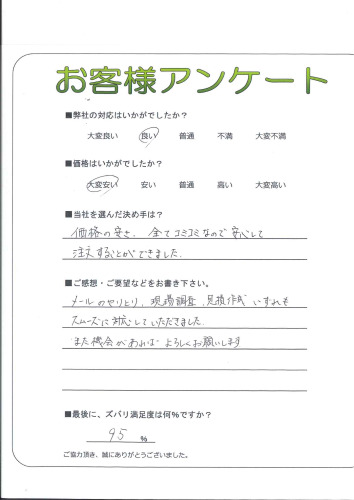 お客様アンケート
■弊社の対応はいかがでしたか？
大変良い 良い 普通 不満 大変不満
■価格はいかがでしたか？
大変安い 安い 普通 高い 大変高い
■当社を選んだ決め手は？
価格の安さ、全てコミコミなので安心して
注文することができました。
■ご感想・ご要望などをお書き下さい。
メールのやりとり、現場調査、見積作成いずれも
スムーズに対応していただきました。
また機会があればよろしくお願いします
■最後に、ズバリ満足度は何％ですか？
95 ％
ご協力頂き、誠にありがとうございました。